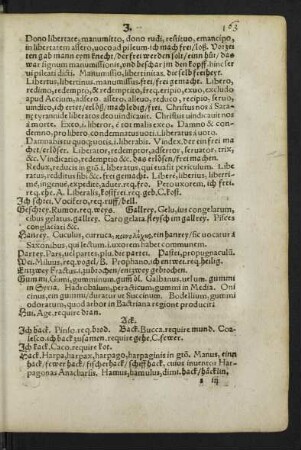 J.
163
Dono libertate, manumitto, dono rudi, restituo, emancipo,
in libertatem assero, uoco ad pileum ich mach frei/loß. Vorzei
ten gab mann eym knecht/ der frei werden solt/ einn hůt/ das
war signum manumissionis, vnd beschar jm den kopff hinc ser
ui pileati dicti. Manumissio, libertinitas, die selb freiheyt.
Libertus, libertinus, manumissus &c. frei/ frei gemacht. Libero,
redimo, emancipo, redemptito, req. freq. eripio, exuo, excludo
apud Accium, adsero, assero, asseuo, reduco, recipio, seruo,
uindico, ich errer/ erlöß/ mach ledig/ frei. Christus nos à Sata-
næ tyrannide liberatos deo uindicauit. Christus uindicauit nos
à morte. Exeo, libero, è cormalis exeo. Damno & con-
demno, pro libero condemnatus uoti, liberatus à uoto.
Damnabis tu quoque uotis, i. liberabis. Vindex, der ein frei ma
chet/ erlöser. Liberator, redemptor, adsertor, seruator, trix,
&c. Vindicatio, redemptio &c. das erlösen/ frei machen.
Redux, redicis in gtō s. i. liberatus, qui euasit periculum. Libe
ratus, redditus sibi &c. frei gemacht. Libere, liberius, liberri-
me, ingenue, expedite, aduer. req. fro. Pero uxorem, ich frei.
req. che. A. Liberalis, kostfrei. req. geb. C. Kost.
Ich schrei, Vocifero. req. ruff, bell.
Geschrey, Rumor. req. were. Gallrey, Gelu, ius congelatum,
cibus gelatus, gallrey. Caro gelata fleysch im gallrey. Pisces
conglaciati &c.
Hanrey. Cuculus, curruca, ein hanrey/ sic uocatur à
Saxonibus, qui lectum. i. uxorem habet communem.
Partey. Pars, uel partes, plu. in aibꝰ partem. Pastei, propugnaculū.
Wei. Miluus. req. vogel. B. Prophano, ich entwei. req. heilig.
Entzwey Fractus. i. zubrochen/ entzwey gebrochen.
Gum̄i. Gumi, gummium, gum̄i dē. Galbanus, uel um. gum̄mi
in Syria. Hadrobolum, peraticum, gummi in Media. Oni
cinus, ein gum̄mi/ duratur ut Succinum. Bodellium, gummi
odoratum, quod arbor in Bactriana regione producit
Hui. Age, require dran.
Ack.
Ich back. Pinso. req. brod. Back. Bucca. require mund. Coa-
lesco, ich back zusamen. require gehe. C. fewer.
Ich kack. Caco. require kot.
Hack. Harpa, harpax, harpago, harpaginis in gtō. Manus, einn
hack/ fewer hack/ fischer hack/ schiffhack. cuius inuentor Har-
pagonas Anacharsis. Hamus, hamulus, dimi. hack/ häcklin,
iij